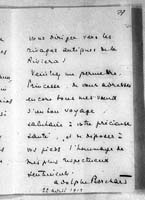 vous diriger vers les
rivages antiques de la
Riviera!
Veuillez me permettre,
Princesse, de vous adresser
encore tous mes vœux
d'un bon voyage
salutaire à votre précieuse
santé, et de déposer à
vos pieds l'hommage de
mes plus respectueux
sentiments.
Adolphe
22 avril